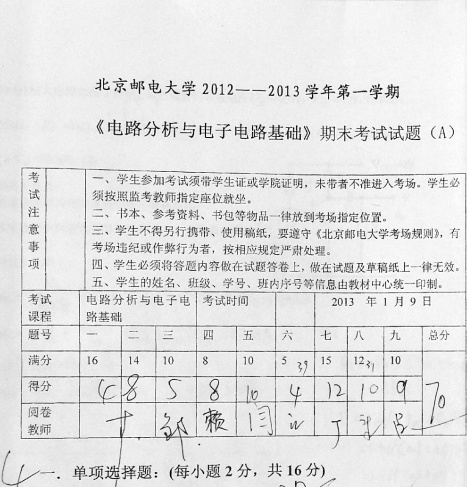 北京邮电大学 2012——2013 学年第一学期
《电路分析与电子电路基础》期末考试试题（A）
考试注意事项
一、学生参加考试须带学生证或学院证明，未带者不准进入考场。学生必
须按照监考教师指定座位就坐。
二、书本、参考资料、书包等物品一律放到考场指定位置。
三、学生不得另行携带、使用稿纸，要遵守《北京邮电大学考场规则》，有
考场违纪或作弊行为者，按相应规定严肃处理。
四、学生必须将答题内容做在试题答卷上，做在试题及草稿纸上一律无效。
五、学生的姓名、班级、学号、班内序号等信息由教材中心统一印制。
考试课程 电路分析与电子电路基础 考试时间 2013 年 1 月 9 日
题号 一 二 三 四 五 六 七 八 九 总分
满分 16 14 10 8 10 5 39 15 12 31 10
得分 4 8 5 8 10 4 12 10 9 70
阅卷教师 邹 赖 闫 丁
4 一．单项选择题：(每小题 2 分，共 16 分)